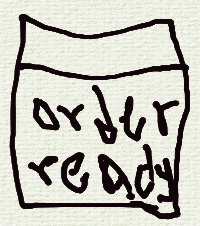 order
ready